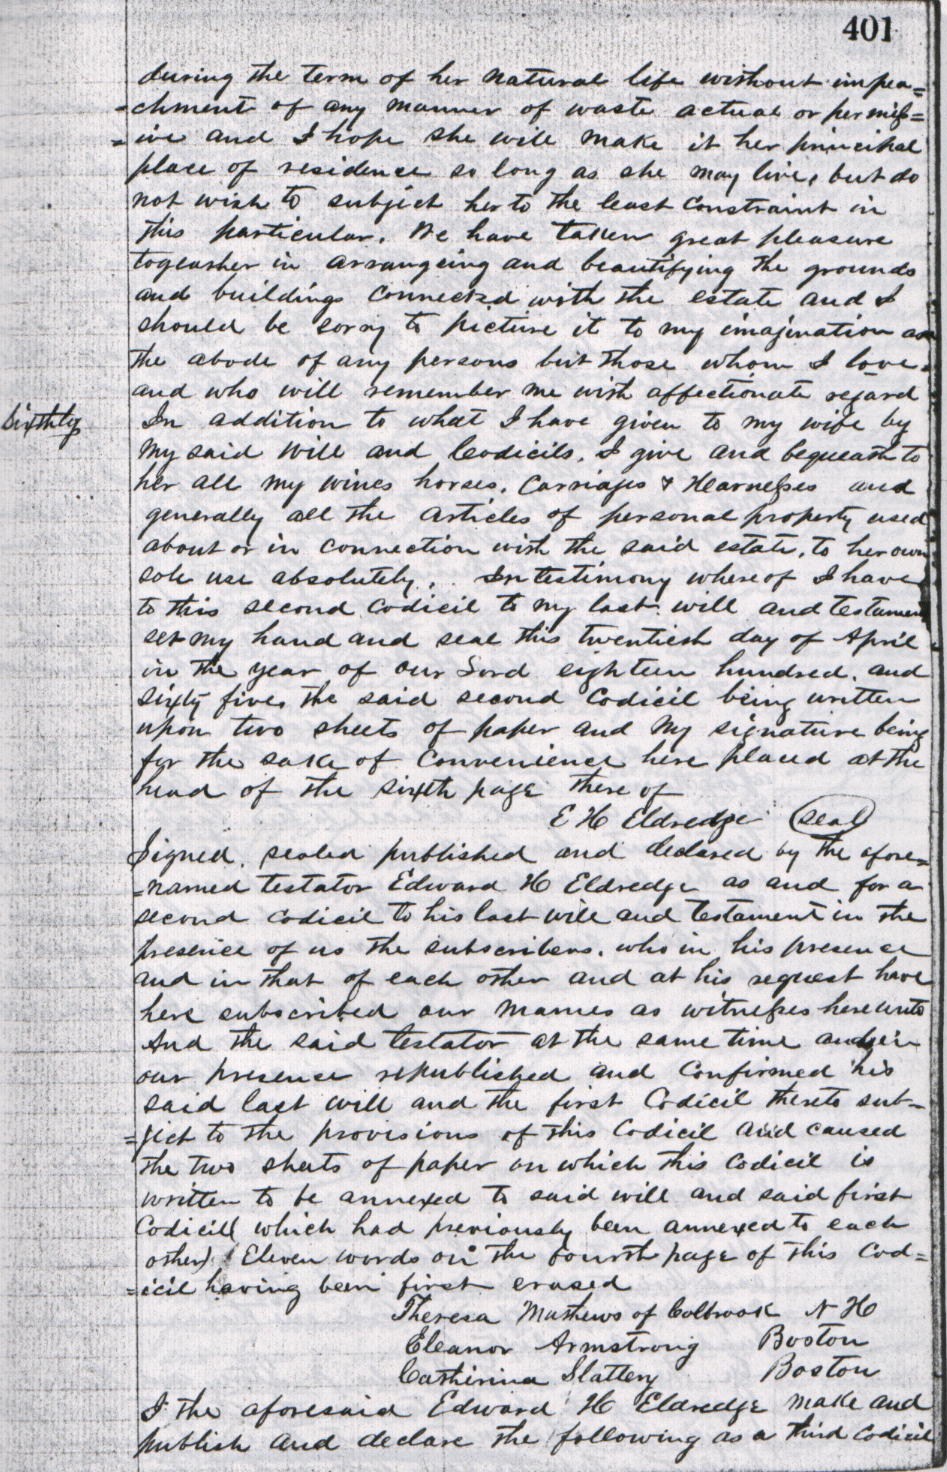 401
during the term of her natural life without impea=
=chment of any manner of waste actual or permiss=
=ive and I hope she will make it her principal
place of residence so long as she may live, but do
not wish to subject her to the least constraint in
this particular. We have taken great pleasure
togeather in arrangeing and beautifying the grounds
and buildings connected with the estate and I
should be sorry to picture it to my imagination as
the abode of any persons but those whom I love
and who will remember me with affectionate regard
Sixthly In addition to what I have given to my wife by
my said Will and Codicils, I give and bequeath to
her all my wines horses, Carriages & Harnesses and
generally all the articles of personal property used
about or in connection with the said estate, to her own
sole use absolutely. In testimony whereof I have
to this second Codicil to my last will and testament
set my hand and seal this twentieth day of April
in the year of our Lord eighteen hundred and
sixty five, the said second Codicil being written
upon two sheets of paper and my signature being
for the sake of convenience here placed at the
head of the sixth page there of
E H Eldredge (seal)
Signed, sealed published and declared by the afore=
=named testator Edward H Eldredge as and for a
second codicil to his last will and testament in the
presence of us the subscribers, who in his presence
and in that of each other and at his request have
here subscribed our names as witnesses hereunto
And the said testator at the same time and in
our presence republished and confirmed his
said last will and the first Codicil thereto sub-
=ject to the provisions of this Codicil and caused
the two sheets of paper on which this Codicil is
written to be annexed to said will and said first
Codicil (which had previously been annexed to each
other) Eleven words on the fourth page of this Cod=
=icil having been first erased
Theresa Mathews of Colbrook N H
Eleanor Armstrong Boston
Catherina Slattery Boston
I the aforesaid Edward H Eldredge make and
publish and declare the following as a third Codicil